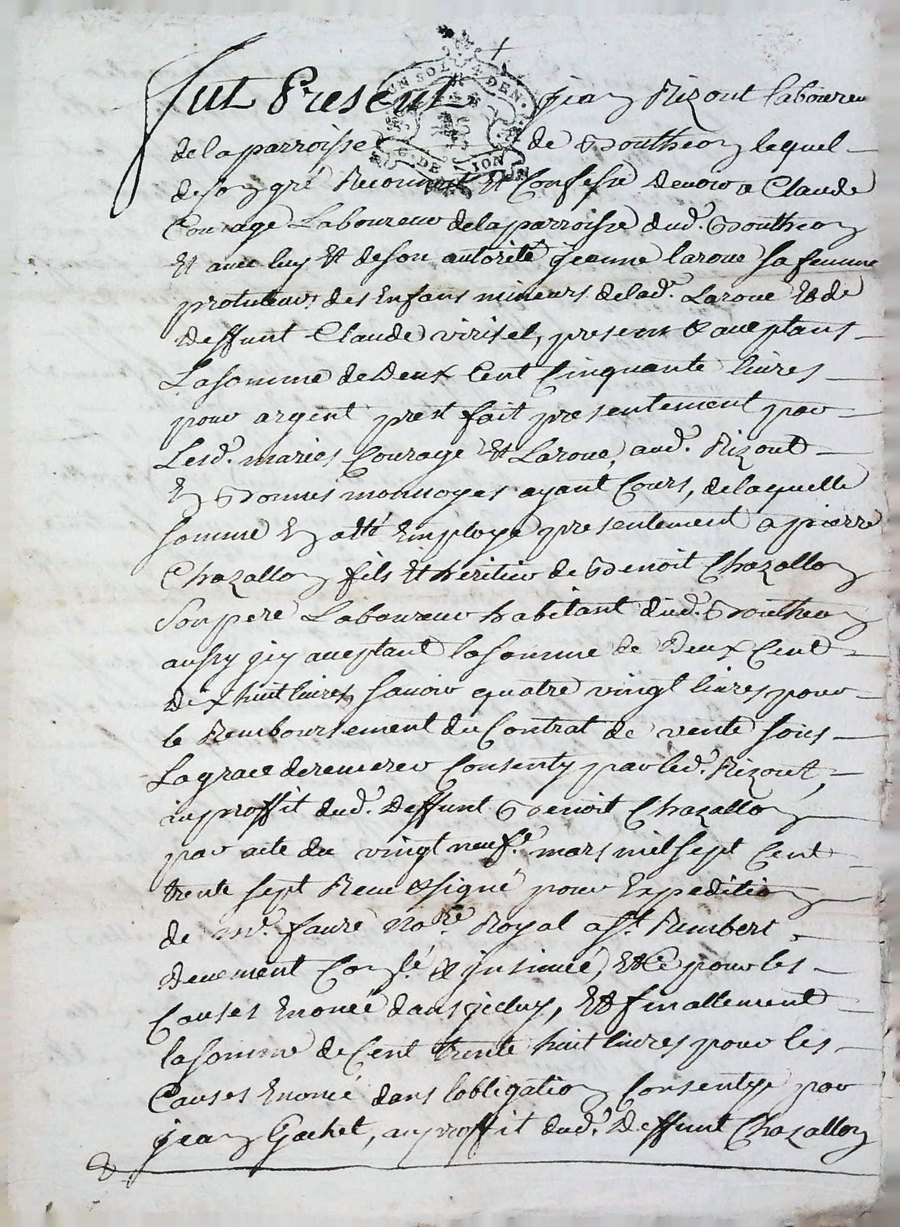 Fut Present Jean Rizout laboureu
de la parroisse de Bontheon lequel
de son gré Reconnoit et Confesse devoir a Claude
Courage Laboureur de la parroisse dud. Bontheon
Et avec luy et de son autorité jeanne laroue sa femme
protuteurs des Enfans mineurs de lad. Laroue et de
deffunt Claude virisel, presens et aceptans
La somme de deux Cent Cinquante livres
pour argent prest fait presentement par
Lesd. mariés Courage et Laroue, aud. Rizout
En bonnes monnoyes ayant Cours, de laquelle
somme En a été Employé presentement a pierre
Chazallon fils et heritier de Benoit Chazallon
son pere Laboureur habitant dud. Bontheon
aussy icy aceptant la somme de deux Cent
dix huit livres, savoir quatre vingt livres pour
le Remboursement du Contrat de vente sous
La grace de remerer Consenty par led. Rizout,
au proffit dud. deffunt Benoit Chazallon
par acte du vingt neufe. mars mil sept Cent
trente sept Receu et signé pour Expedition
de me. faure nore. Royal a St. Rambert,
deuement Conlé. et insinué, et ce pour les
Causes Enoncé dans iceluy, Et finallement
la somme de Cent trente huit livres pour les
Causes Enoncé dans lobligation Consentye par
jean Gachet, au proffit dud. deffunt Chazallon